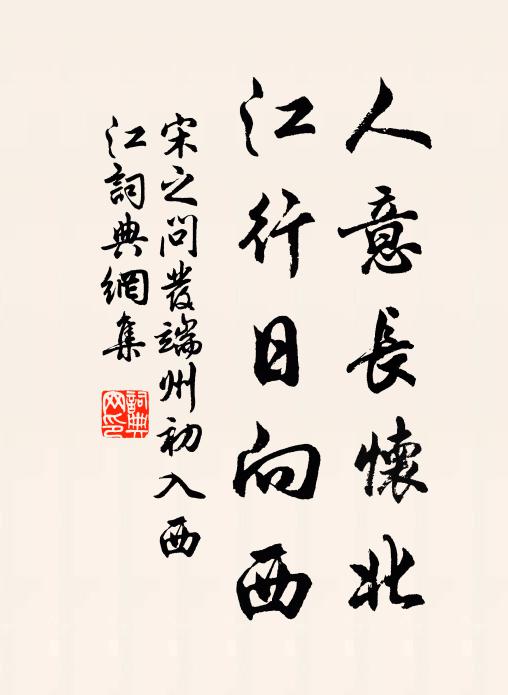 人意長懷北
江行日向西
宋之問發端州初入西
江詞典網集
詞典网印